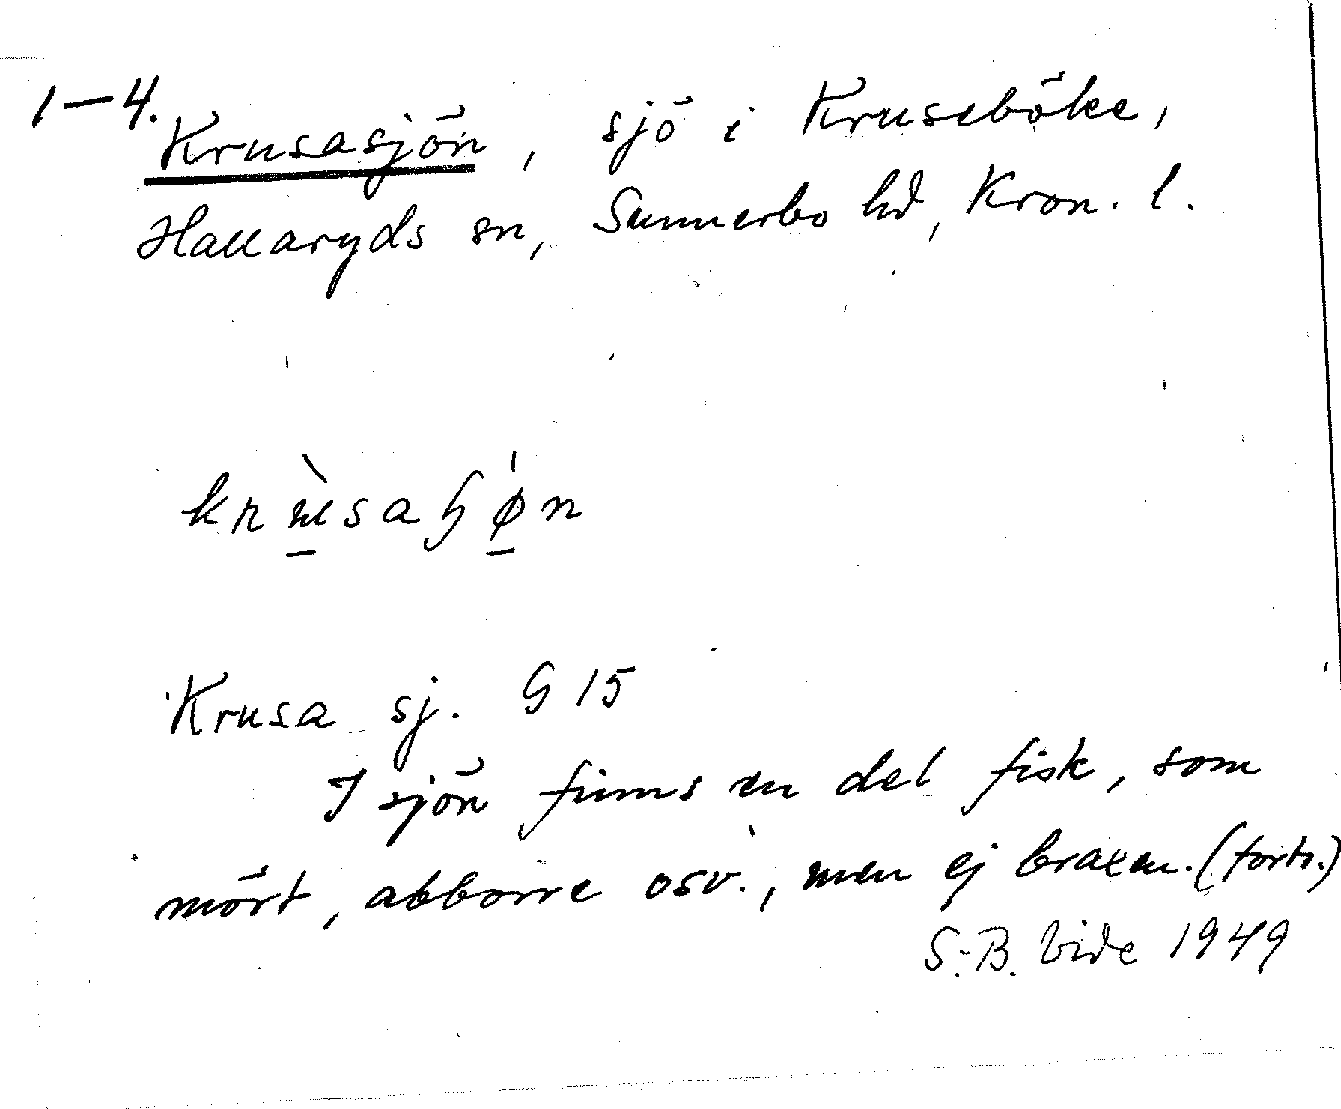 1–4.
Krusasjön, sjö i Kruseböke,
Hallaryds sn, Sunnerbo hd, Kron. l.
krùsaɧø̍n
Krusa sj. G 15
I sjön finns en del fisk, som
mört, abborre osv., men ej braxen. (forts.)
S.-B. Vide 1949